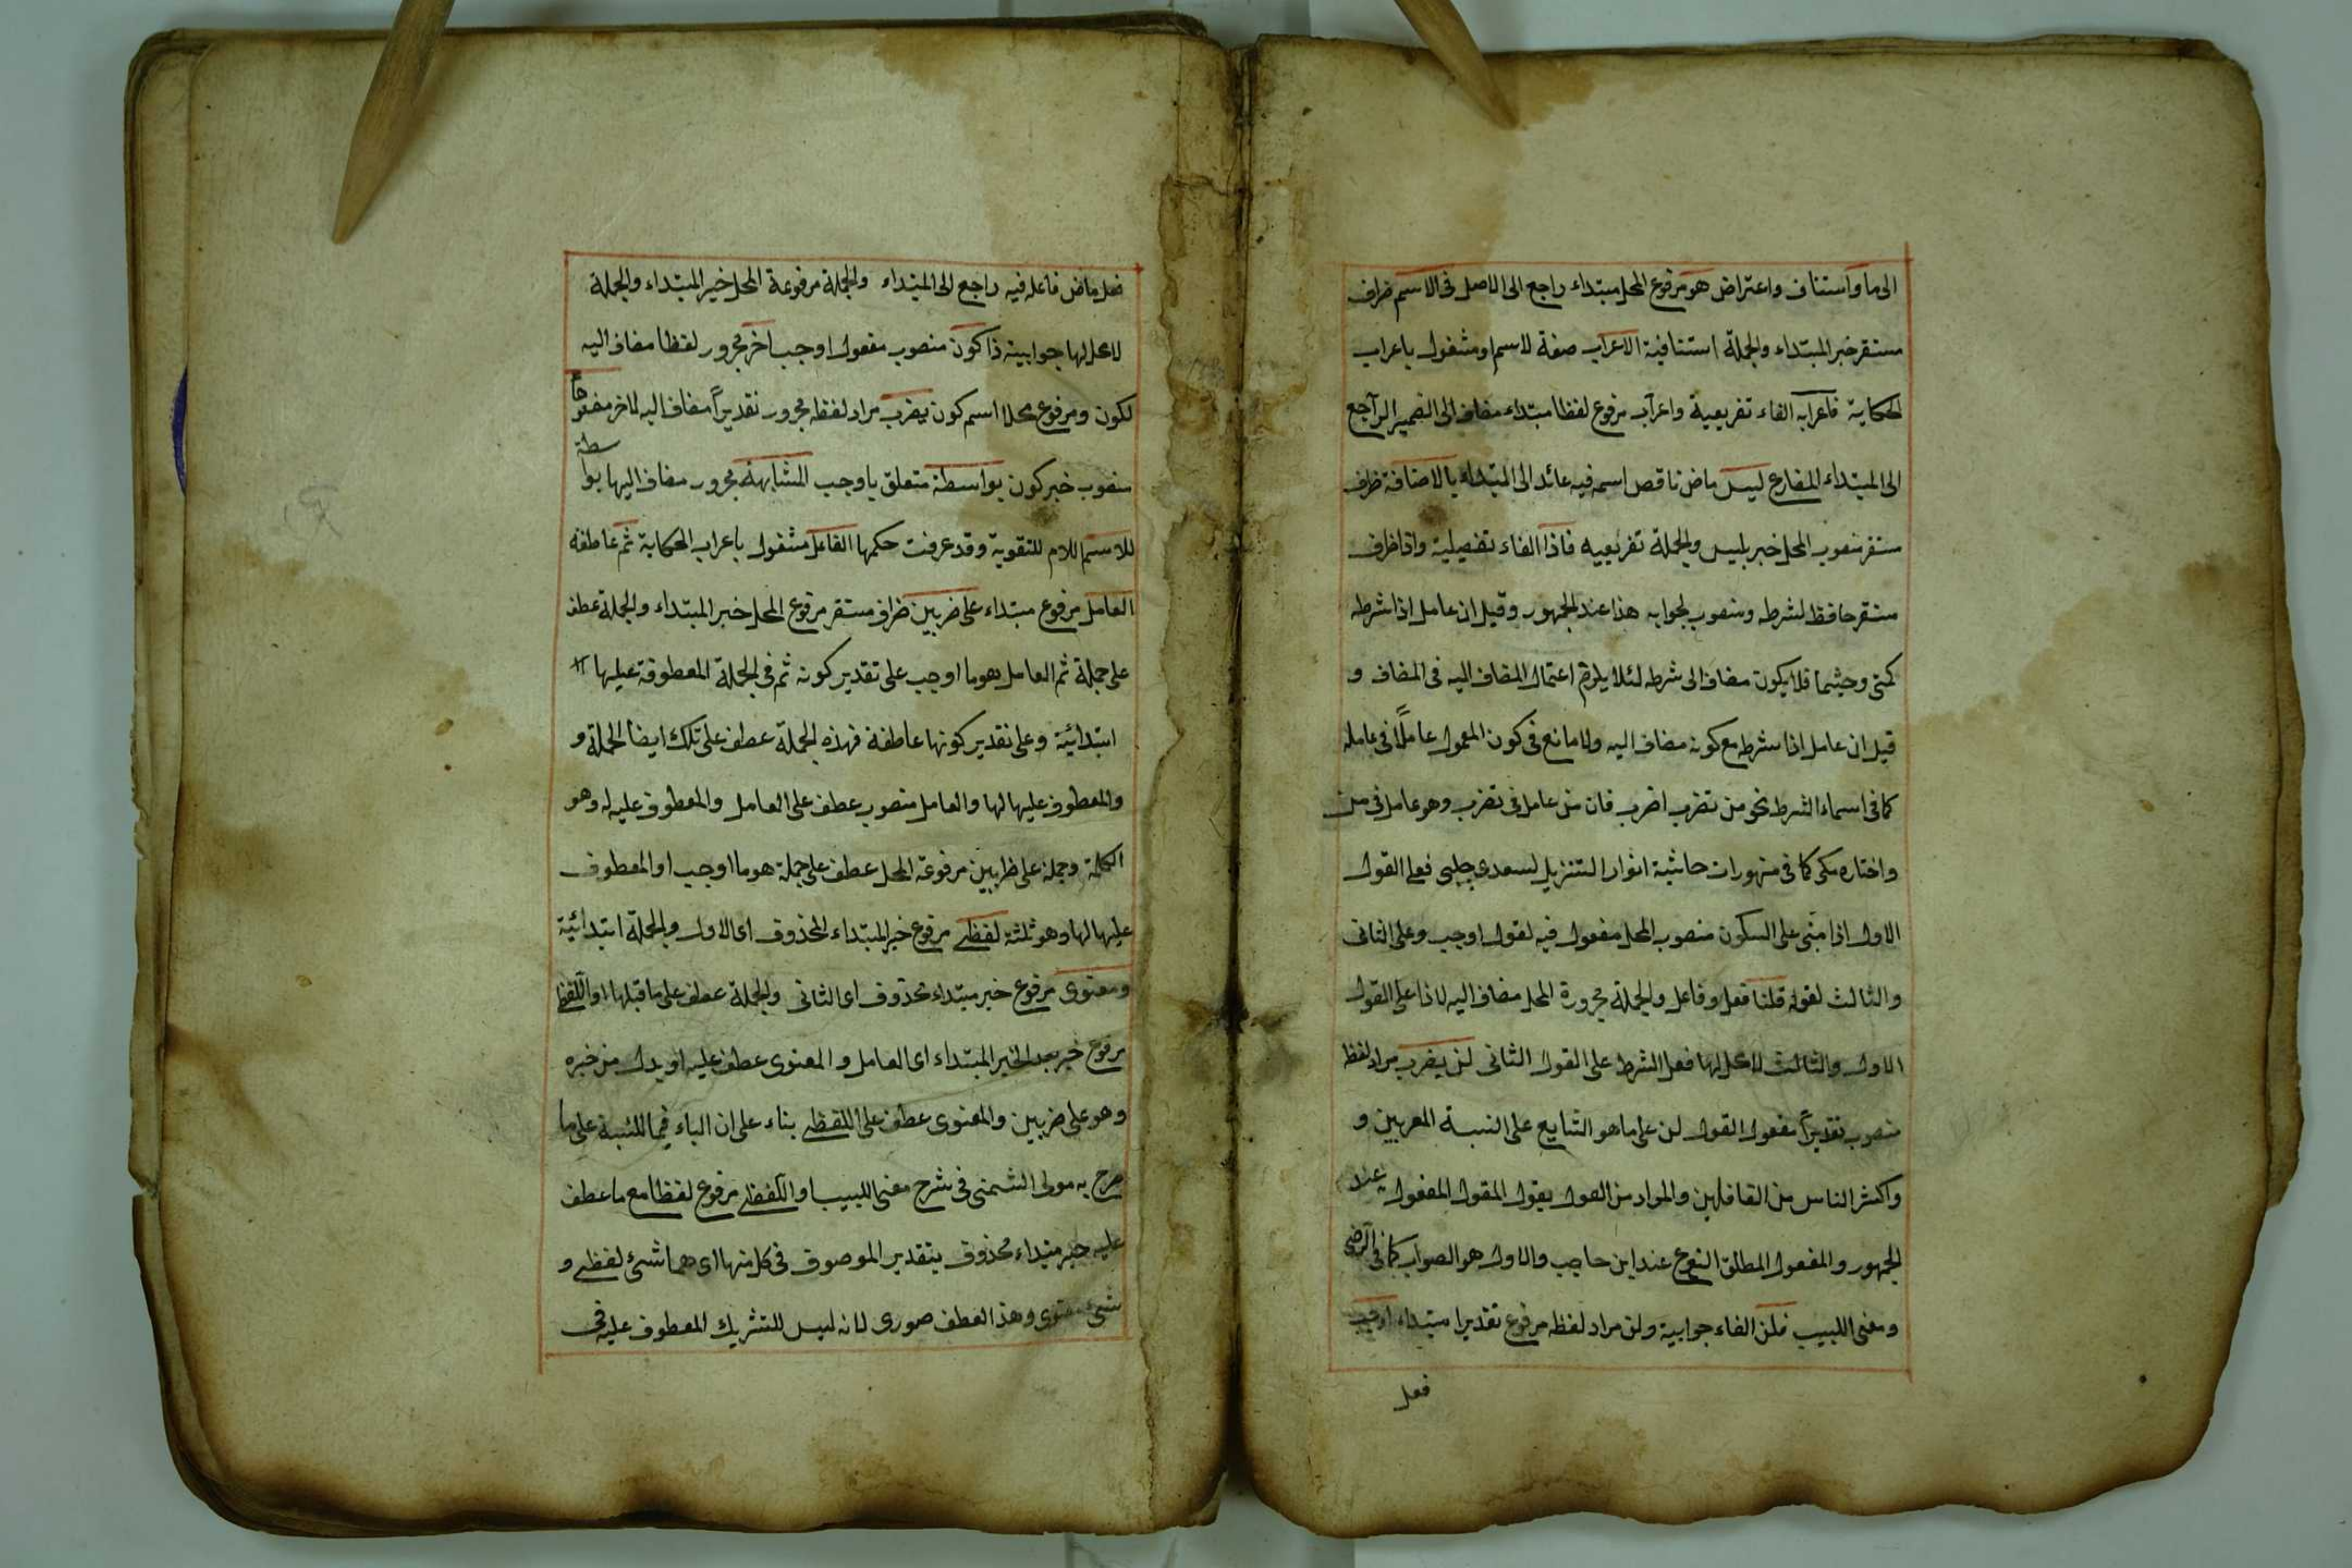 الى ما واستئناف واعتراض هو مرفوع المحل مبتداء راجع الى الاصل فى الاسم ظرف
مستقر خبر المبتداء والجملة استئنافية الاعراب صفة لاسم او مشغول باعراب
الحكاية فاعرابه الفاء تفريعية واعراب مرفوع لفظا مبتداء مضاف الى الضمير الراجع
الى المبتداء المضارع ليس ماض ناقص اسمه فيه عائد الى المبتداء بالاضافة ظرف
مستقر منصوب المحل خبر بليس والجملة تفريعيه فاذا الفاء تفصيلية واذا ظرف
مستقر حافظ لشرطه ومنصوب لجوابه هذا عند الجمهور وقيل ان عامل اذا شرطه
كمتى وحيثما فلا يكون مضاف الى شرطه لئلا يلزم اعتمال المضاف اليه فى المضاف و
قيل ان عامل اذا شرطه مع كونه مضاف اليه ولا مانع فى كون المعمول عاملاً فى عامله
كما فى اسماء الشرط نحو من تضرب اضرب فان من عامل فى تضرب وهو عامل فى من
واختاره مكى كما فى منهوات حاشية انوار التنزيل لسعدى چلبى فعلى القول
الاول اذا مبنى على السكون منصوب المحل مفعول فيه لقول اوجب وعلى الثانى
والثالث لقوله قلنا فعل وفاعل والجملة مجرورة المحل مضاف اليه لاذا على القول
الاول والثالث لا محل لها فعل الشرط على القول الثانى لن يضرب مراد لفظ
منصوب تقديراً مفعول القول لن على ما هو الشايع على النسبة المعربين و
واكثر الناس من القافلين والمراد من القول يقول المقول المفعول عند
الجمهور والمفعول المطلق النوع عند ابن حاجب والاول هو الصواب كما فى الرضى
ومغنى اللبيب فلن الفاء جوابية ولن مراد لفظه مرفوع تقديرا مبتداء اوجب
فعل
فعل ماض فاعله فيه راجع الى المبتداء والجملة مرفوعة المحل خبر المبتداء والجملة
لا محل لها جوابية ذا كون منصوب مفعول اوجب اخر مجرور لفظا مضاف اليه
لكون ومرفوع محلا اسم كون يضرب مراد لفظه مجرور تقديراً مضاف اليه لاخر مفتوحا
منصوب خبر كون بواسطة متعلق باوجب المشابهة مجرور مضاف اليها بواسطة
للاسم اللام للتقوية وقد عرفت حكمها الفاعل مشغول باعراب الحكاية ثم عاطفة
العامل مرفوع مبتداء على ضربين ظرف مستقر مرفوع المحل خبر المبتداء والجملة عطف
على جملة ثم العامل هو ما اوجب على تقدير كونه ثم فى الجملة المعطوفة عليها
ابتدائية وعلى تقدير كونها عاطفة فهذه الجملة عطف على تلك ايضا الجملة و
والمعطوف عليها لها والعامل منصوب عطف على العامل والمعطوف عليه له وهو
الكلمة وجملة على ظربين مرفوعة المحل عطف على جملة هو ما اوجب او المعطوف
عليها لها وهو ثلثة لفظى مرفوع خبر المبتداء المحذوف اى الاول والجملة ابتدائية
ومعنوى مرفوع خبر مبتداء محذوف اى الثانى والجملة عطف على ما قبلها او اللفظ
مرفوع خبر بعد الخبر المبتداء اى العامل و المعنوى عطف عليه او بدل من خبره
وهو على ضربين والمعنوى عطف على اللفظى بناء على ان الياء فيما للنسبة على ما
صرح به مولى الشمنى فى شرح مغنى اللبيب او اللفظى مرفوع لفظا مع ما عطف
عليه خبر مبتداء محذوف بتقدير الموصوف فى كل منها اى هما شئ لفظى و
شئ معنوى وهذا العطف صورى لانه ليس للتشريك المعطوف عليه فى